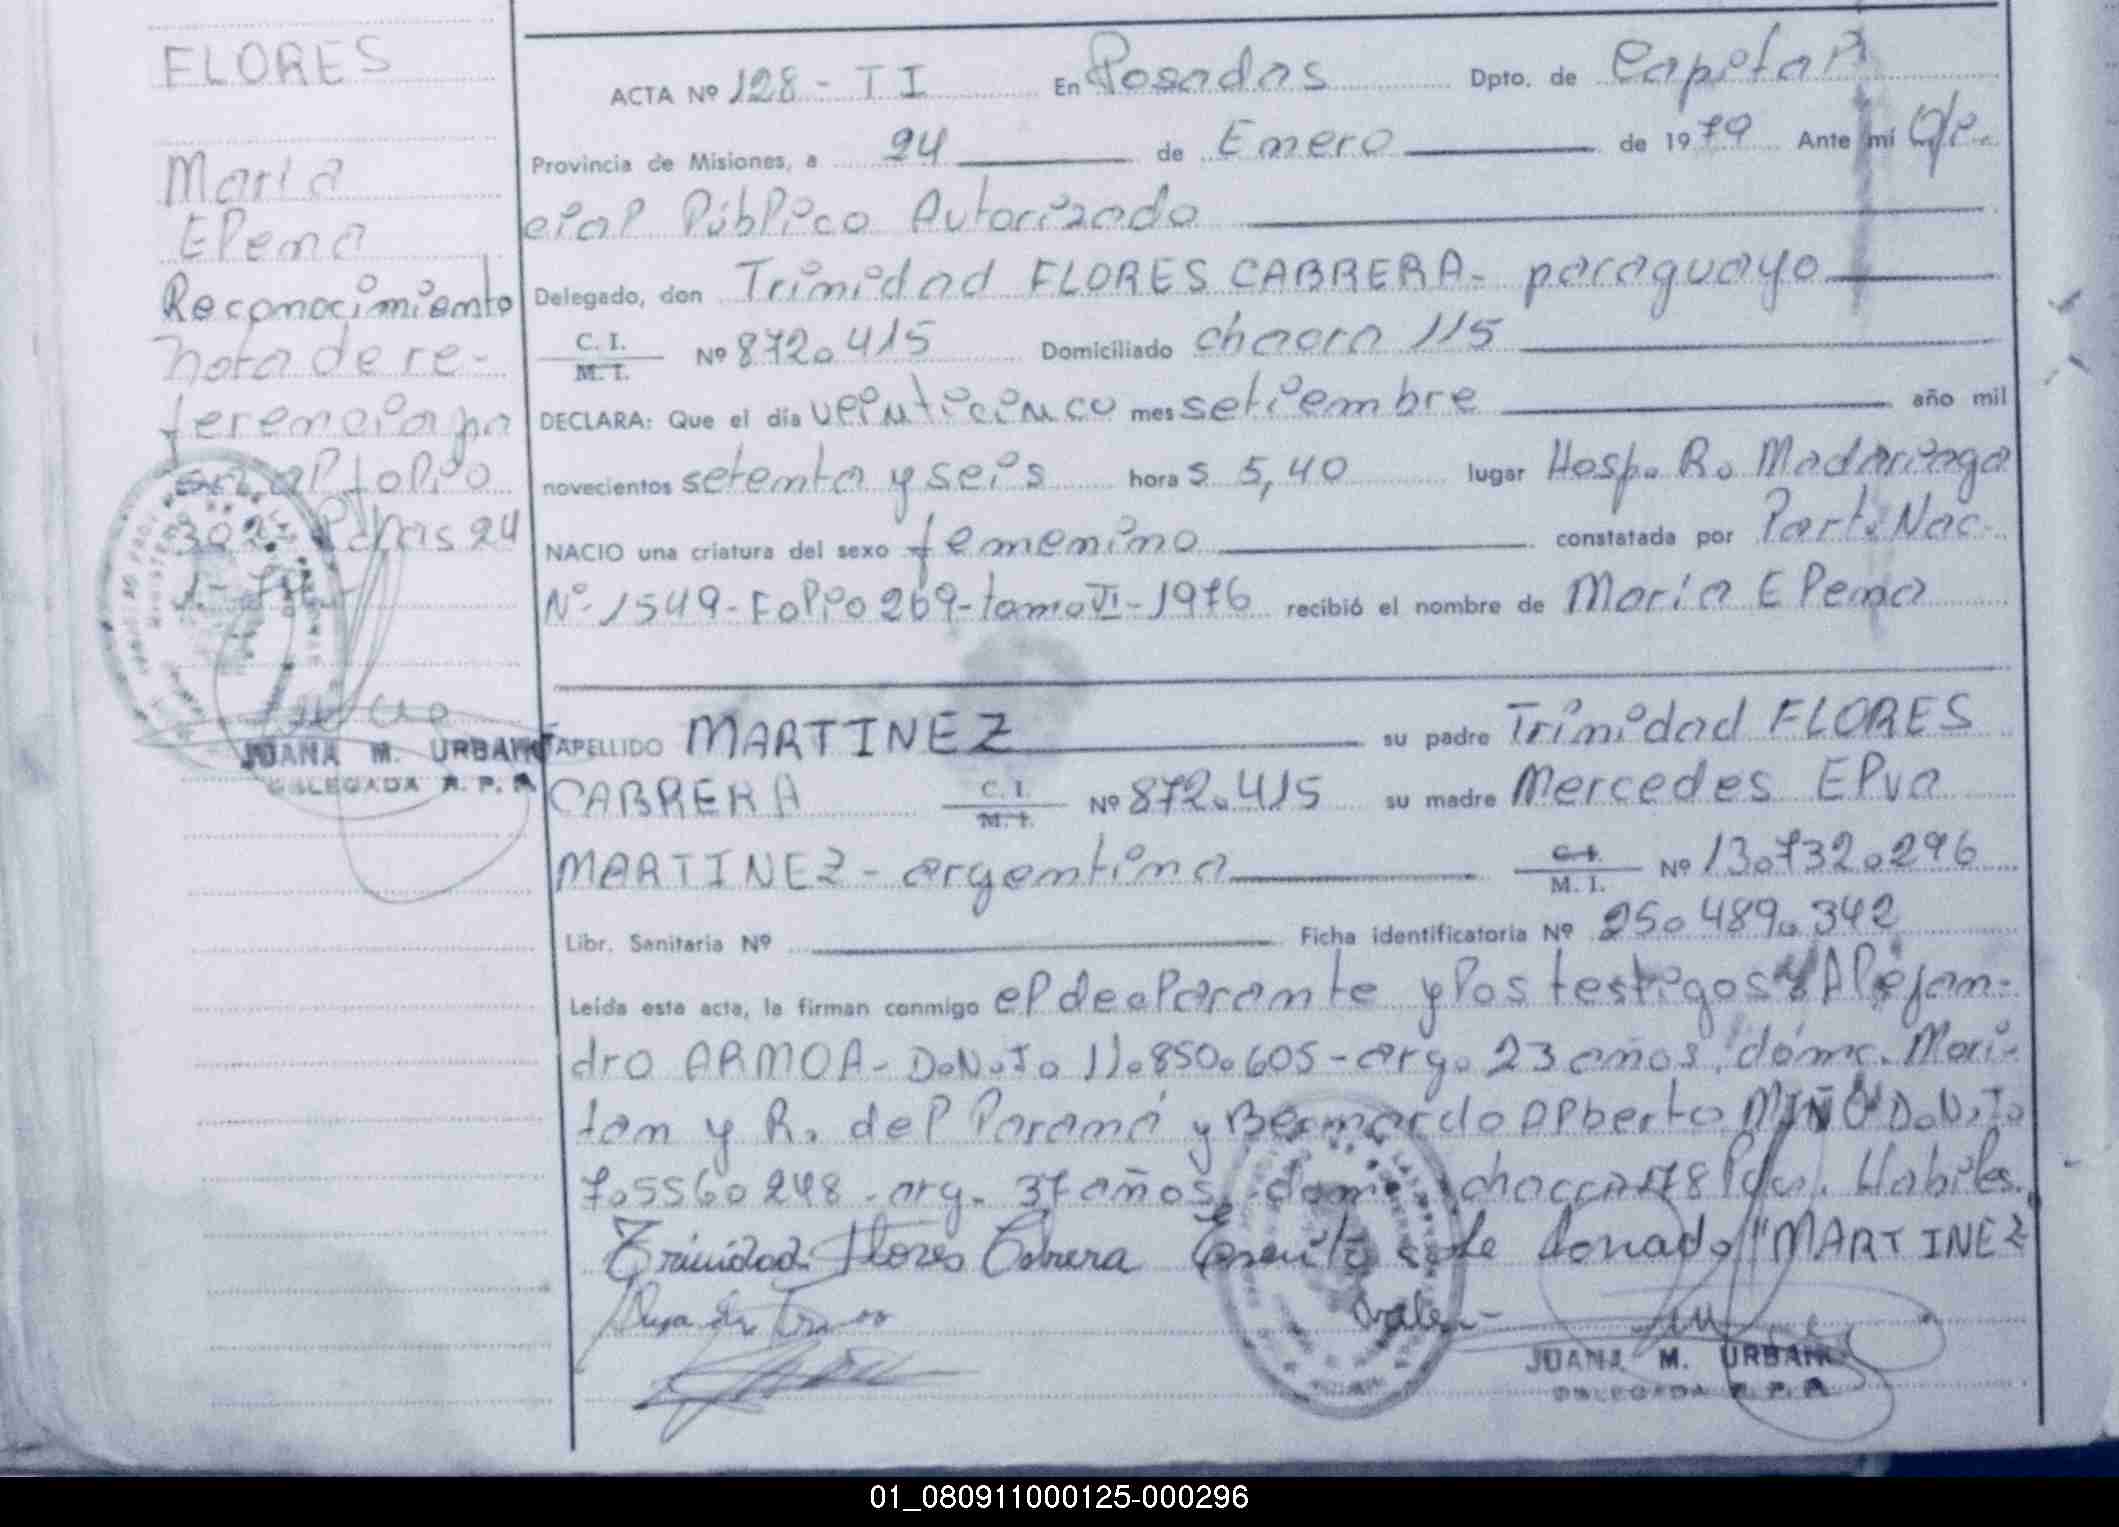 FLORES
María
Elena
Reconocimiento
nota de re-
ferencia pa
sa al folio
302. Pdas 24
JUANA M. URBAN
DELEGADA R. P. P.
ACTA Nº 128 - T I En Posadas Dpto. de Capital
Provincia de Misiones, a 24 de Enero de 1979 Ante mí Ofi.
cial Público Autorizado
Delegado, don Trinidad FLORES CABRERA- paraguayo
C. I. M. I. Nº 872.415 Domiciliado chacra 115
DECLARA: Que el día veinticinco mes setiembre año mil
novecientos setenta y seis hora s 5,40 lugar Hosp. R. Madariaga
NACIO una criatura del sexo femenino constatada por Part. Nac.
Nº 1549 - Folio 269 - tomo VI - 1976 recibió el nombre de María Elena
APELLIDO MARTINEZ su padre Trinidad FLORES
CABRERA C. I. M. I. Nº 872.415 su madre Mercedes Elva
MARTINEZ - argentina C. I. M. I. Nº 13.732.296
Libr. Sanitaria Nº Ficha identificatoria Nº 25.489.342
Leída esta acta, la firman conmigo el declarante y los testigos Alejan-
dro ARMOA - D.N.I. 11.850.605 - arg. 23 años, domc. Mori-
tan y R. del Paraná y Bernardo Alberto MIÑO D.N.I.
7.556.248 - arg. 37 años, dom. chacra 178 Pdas. Habiles.
Trinidad Flores Cabrera Escrito sobre borrado "MARTINEZ
vale.-
JUANA M. URBAN
DELEGADA R. P. P.
01_080911000125-000296